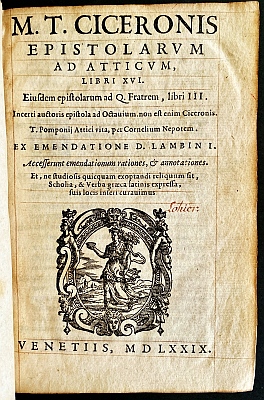 M. T. CICERONIS
EPISTOLARVM
AD ATTICVM,
LIBRI XVI.
Eiusdem epistolarum ad Q. Fratrem, libri III.
Incerti auctoris epistola ad Octauium. non est enim Ciceronis.
T. Pomponij Attici vita, per Cornelium Nepotem.
EX EMENDATIONE D. LAMBINI.
Accesserunt emendationum rationes, & annotationes.
Et, ne studiosis quicquam exoptandi reliquum sit,
Scholia, & Verba græca latinis expressa,
suis locis inseri curauimus
VENETIIS, MDLXXIX.